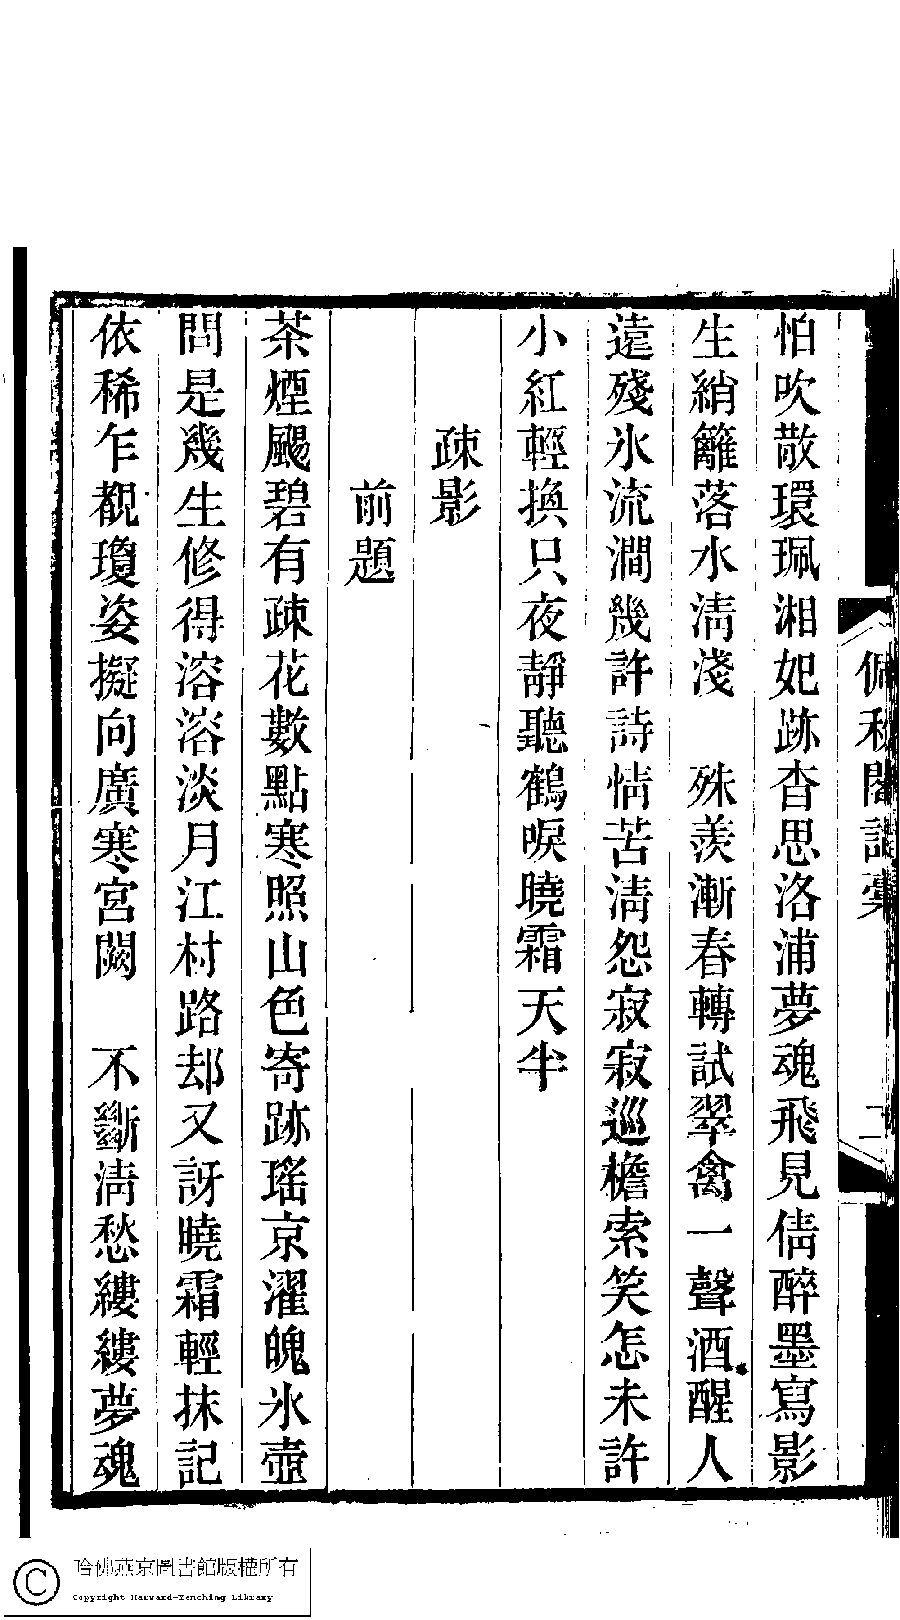 怕吹散環珮湘妃跡杳思洛浦夢魂飛見倩醉墨寫影
生綃籬落水清淺　殊羨漸春轉試翠禽一聲酒醒人
遠殘氷流澗幾許詩情苦清怨寂寂巡檐索笑怎未許
小紅輕換只夜靜聽鶴唳曉霜天半
疎影
前題
茶煙颺碧有疎花數點寒照山色寄跡瑤京濯魄氷壺
問是幾生修得溶溶淡月江村路却又訝曉霜輕抹記
依稀乍覩瓊姿擬向廣寒宮闕　不斷清愁縷縷夢魂
佩秋閣詞稾
二
哈佛燕京圖書館版權所有
Copyright Harvard-Yenching Library